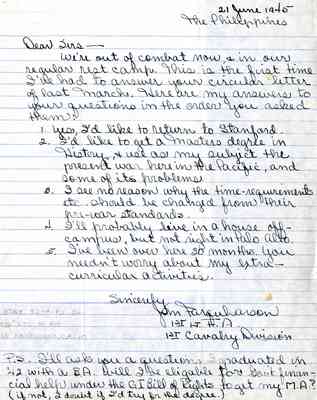 21 June 1945
The Philippines
Dear Sirs —
We're out of combat now, & in our
regular rest camp. This is the first time
I've had to answer your circular letter
of last March. Here are my answers to
your questions in the order you asked
them:
1. Yes, I'd like to return to Stanford.
2. I'd like to get a Masters degree in
History, & use as my subject the
present war here in the Pacific, and
some of its problems.
3. I see no reason why the time-requirements
etc. should be changed from their
pre-war standards.
4. I'll probably live in a house off-
campus, but not right in Palo Alto.
5. I've been over here 30 months. You
needn't worry about my extra-
curricular activities.
Sincerely
Jim Farquharson
1st Lt. F.A.
1st Cavalry Division
P.S. I'll ask you a question. I graduated in
'42 with a BA. Will I be eligible for Govt finan-
cial help under the GI Bill of Rights to get my M.A.?
(if not, I doubt if I'd try for the degree.)